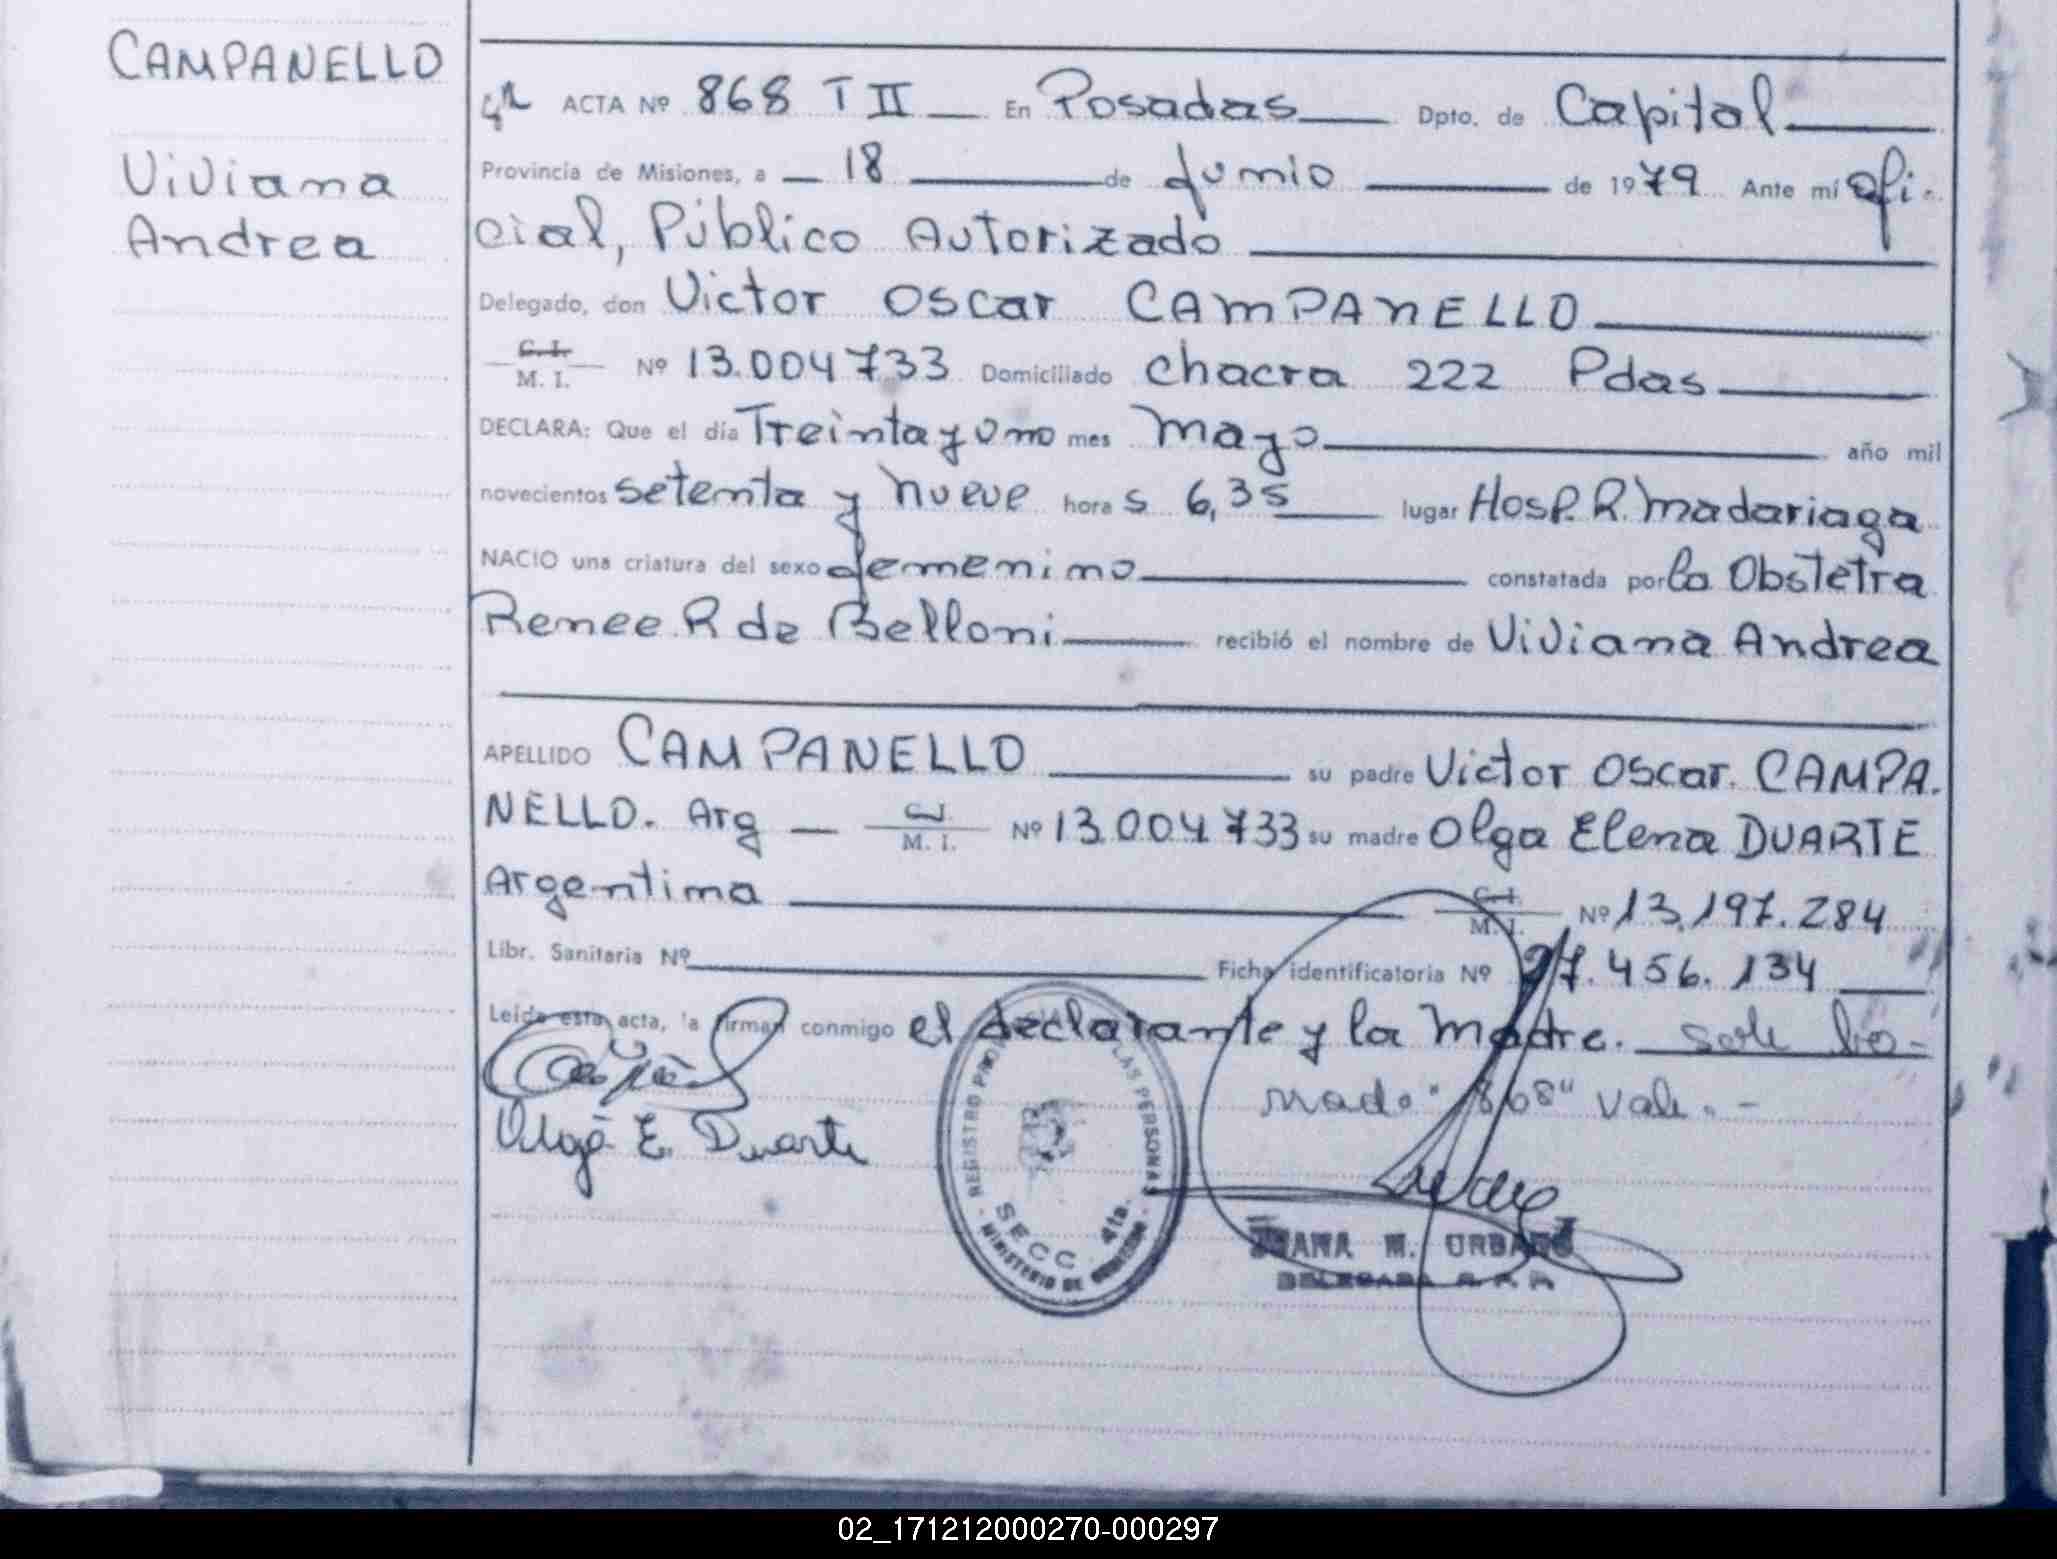 CAMPANELLO
Viviana
Andrea
4ª ACTA Nº 868 T II En Posadas Dpto. de Capital
Provincia de Misiones, a 18 de Junio de 1979 Ante mí Ofi-
cial, Público Autorizado
Delegado, don Victor Oscar CAMPANELLO
C. I. M. I. Nº 13.004.733 Domiciliado Chacra 222 Pdas
DECLARA: Que el día Treinta y uno mes Mayo año mil
novecientos setenta y nueve hora s 6,35 lugar Hosp. R. Madariaga
NACIO una criatura del sexo femenino constatada por la Obstetra
Renee R de Belloni recibió el nombre de Viviana Andrea
APELLIDO CAMPANELLO su padre Victor Oscar. CAMPA-
NELLO. Arg C. I. M. I. Nº 13.004.733 su madre Olga Elena DUARTE
Argentina C. I. M. I. Nº 13.197.284
Libr. Sanitaria Nº Ficha identificatoria Nº 27.456.134
Leída esta acta, la firman conmigo el declarante y la Madre. Sobre bo-
rrado: "868" vale. -
Olga E. Duarte
REGISTRO LAS PERSONAS
SECC. 4ta.
- MINISTERIO DE GOBIERNO -
JUANA M. URBANO
DELEGADA R. P. P.
02_171212000270-000297